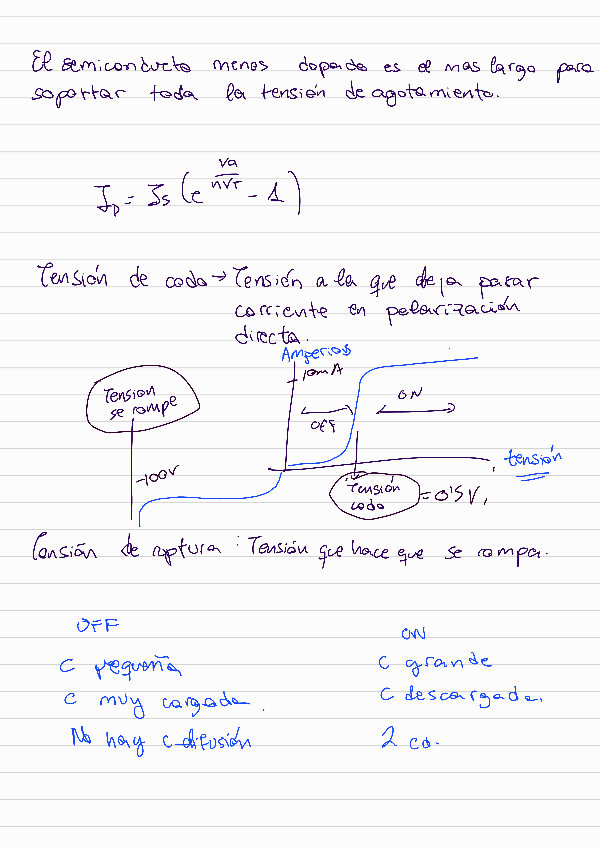 El semiconducto menos dopado es el mas largo para
soportar toda la tensión de agotamiento.
I_D = Is (e^(Va/nVT) - 1)
Tensión de codo → Tensión a la que deja pasar
corriente en polarización
directa.
Amperios
10mA
Tension
se rompe
OFF
ON
-100V
tensión
Tensión
codo
= 0'5 V.
Tensión de ruptura : Tensión que hace que se rompa.
OFF
ON
C pequeña
C grande
C muy cargada.
C descargada.
No hay C-difusión
2 co.